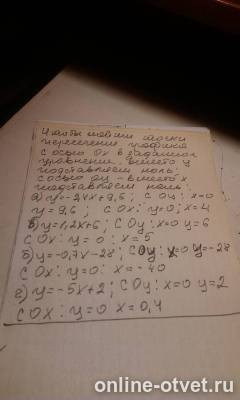 Чтобы найти точки
пересечения графика
с осью Ox в заданном
уравнении вместо y
подставляем ноль;
с осью оу - вместо x
подставляем ноль:
а) y=-2,4x+9,6; С Оу: x=0
y=9,6; С Ох: y=0; x=4
б) y=1,2x+6; С Оу: x=0 y=6
С Ох: y=0; x=5
б) y=-0,7x-28; С Оу: x=0 y=-28
С Ох: y=0: x=-40
г) y=-5x+2; С Оу: x=0 y=2
С Ох: y=0 x=0,4
online-otvet.ru